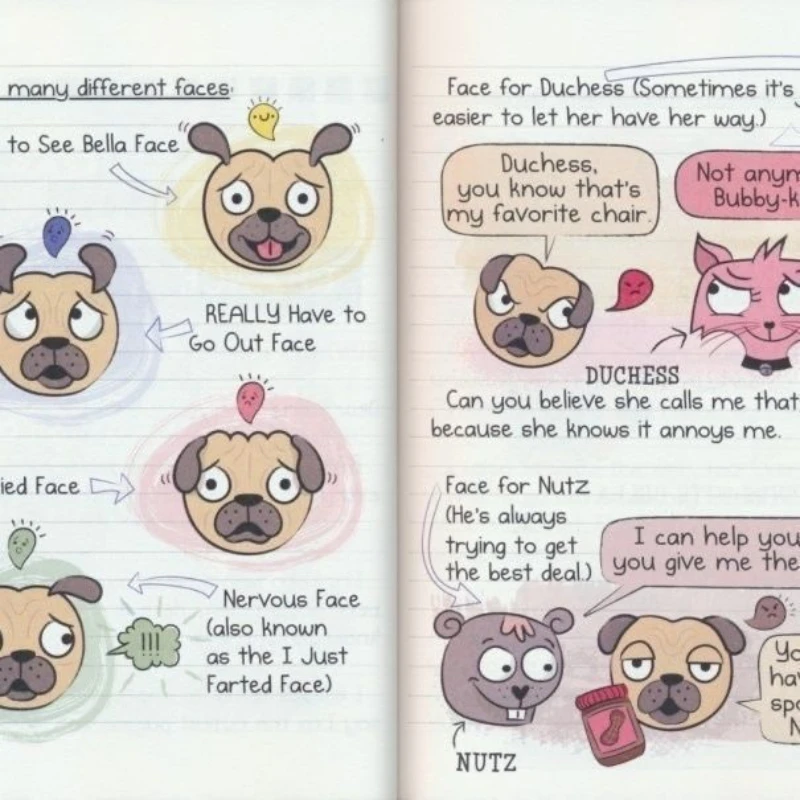 many different faces:
to See Bella Face
REALLY Have to
Go Out Face
ied Face
Nervous Face
(also known
as the I Just
Farted Face)
!!!
Face for Duchess (Sometimes it's
easier to let her have her way.)
Duchess,
you know that's
my favorite chair.
Not anym
Bubby-k
DUCHESS
Can you believe she calls me that
because she knows it annoys me.
Face for Nutz
(He's always
trying to get
the best deal.)
I can help you
you give me the
Yo
hav
spo
N
NUTZ